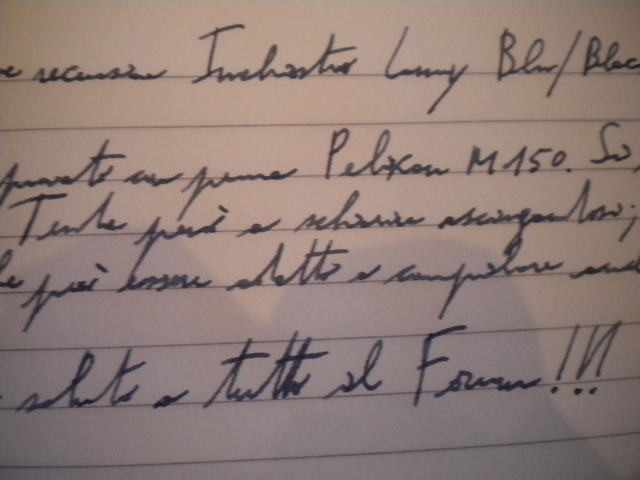 recensione Inchiostro Lamy Blu/Blac
provato con penna Pelikan M 150.
Tende però a schiarire asciugandosi;
può essere adatto a compilare
saluto a tutto il Forum!!!